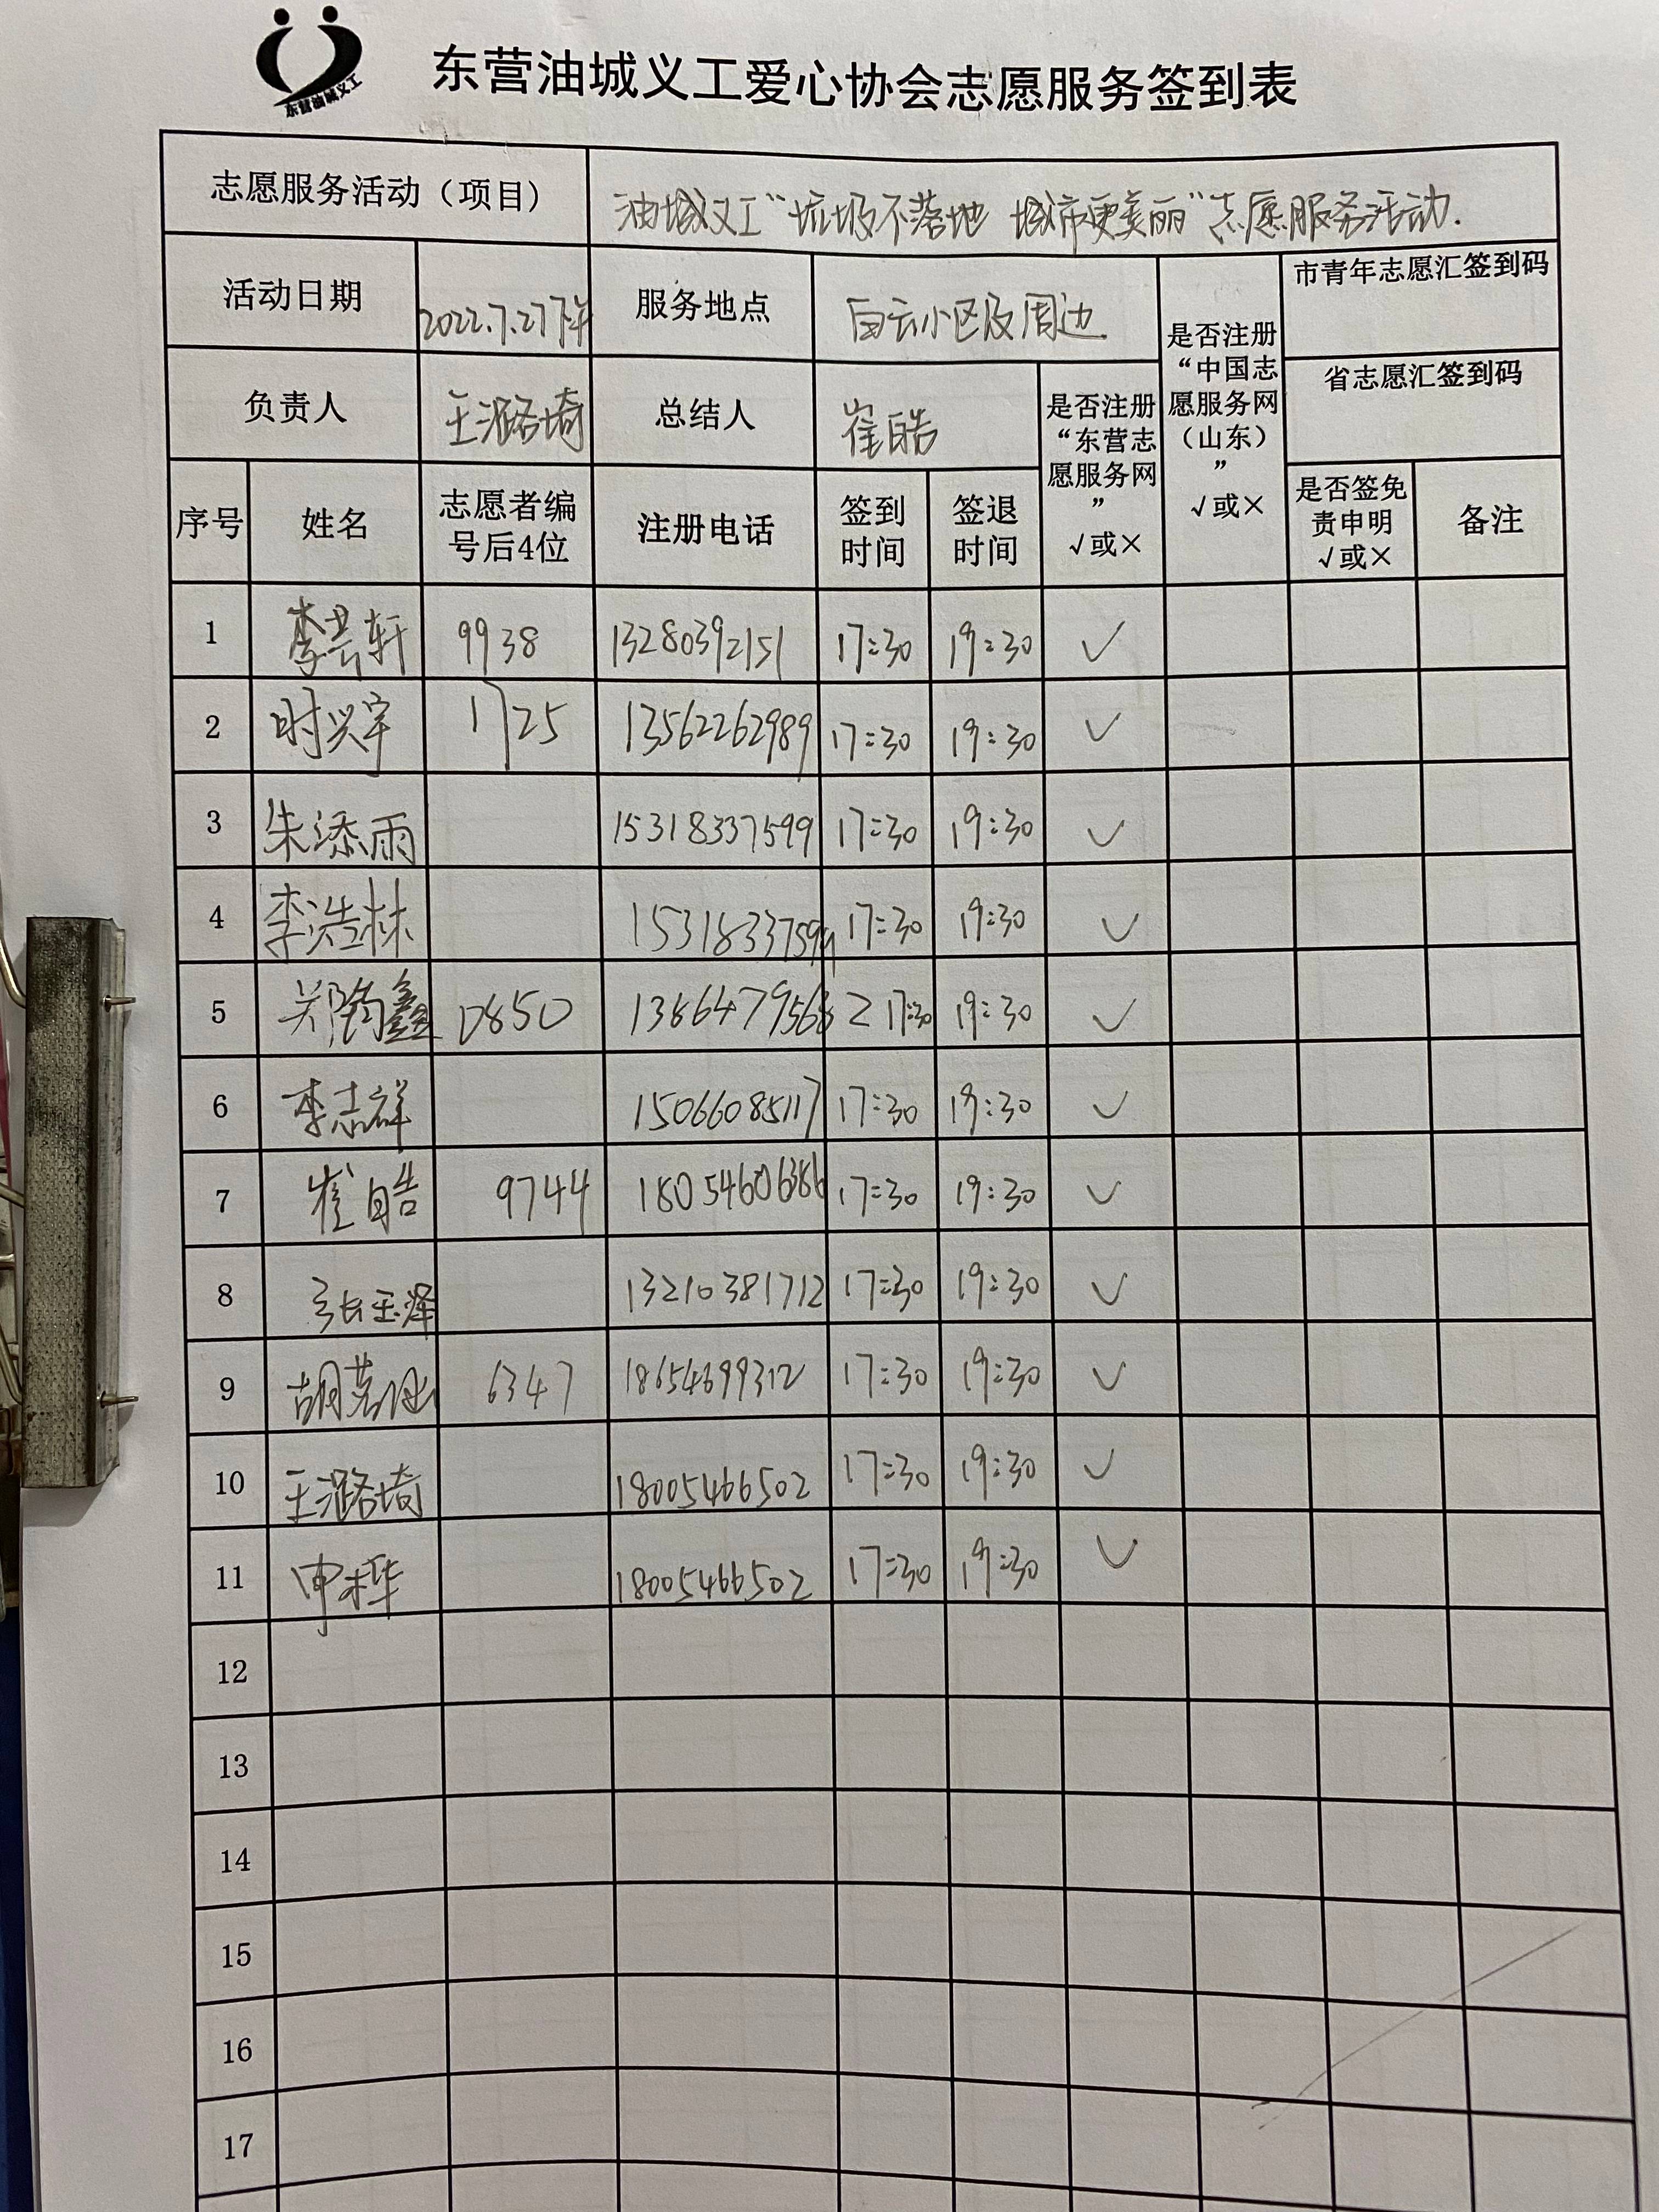 东营油城义工
东营油城义工爱心协会志愿服务签到表
志愿服务活动（项目） 油城义工“垃圾不落地 城市更美丽”志愿服务活动.
活动日期 2022.7.27下午 服务地点 白云小区及周边 是否注册“中国志愿服务网（山东）” √或× 市青年志愿汇签到码
省志愿汇签到码
负责人 王潞埼 总结人 崔皓 是否注册“东营志愿服务网” √或×
序号 姓名 志愿者编号后4位 注册电话 签到时间 签退时间 是否签免责申明 √或× 备注
1 李芸轩 9938 13280392151 17:30 19:30 ✓
2 时兴宇 1725 13562262989 17:30 19:30 ✓
3 朱添雨 15318337599 17:30 19:30 ✓
4 李浩林 15318337599 17:30 19:30 ✓
5 郑钧鑫 0850 13864795682 17:30 19:30 ✓
6 李志祥 15066085117 17:30 19:30 ✓
7 崔皓 9744 18054606386 17:30 19:30 ✓
8 张玉泽 13210381712 17:30 19:30 ✓
9 胡茗 6347 18654699312 17:30 19:30 ✓
10 王潞埼 18005466502 17:30 19:30 ✓
11 申桦 18005466502 17:30 19:30 ✓
12
13
14
15
16
17